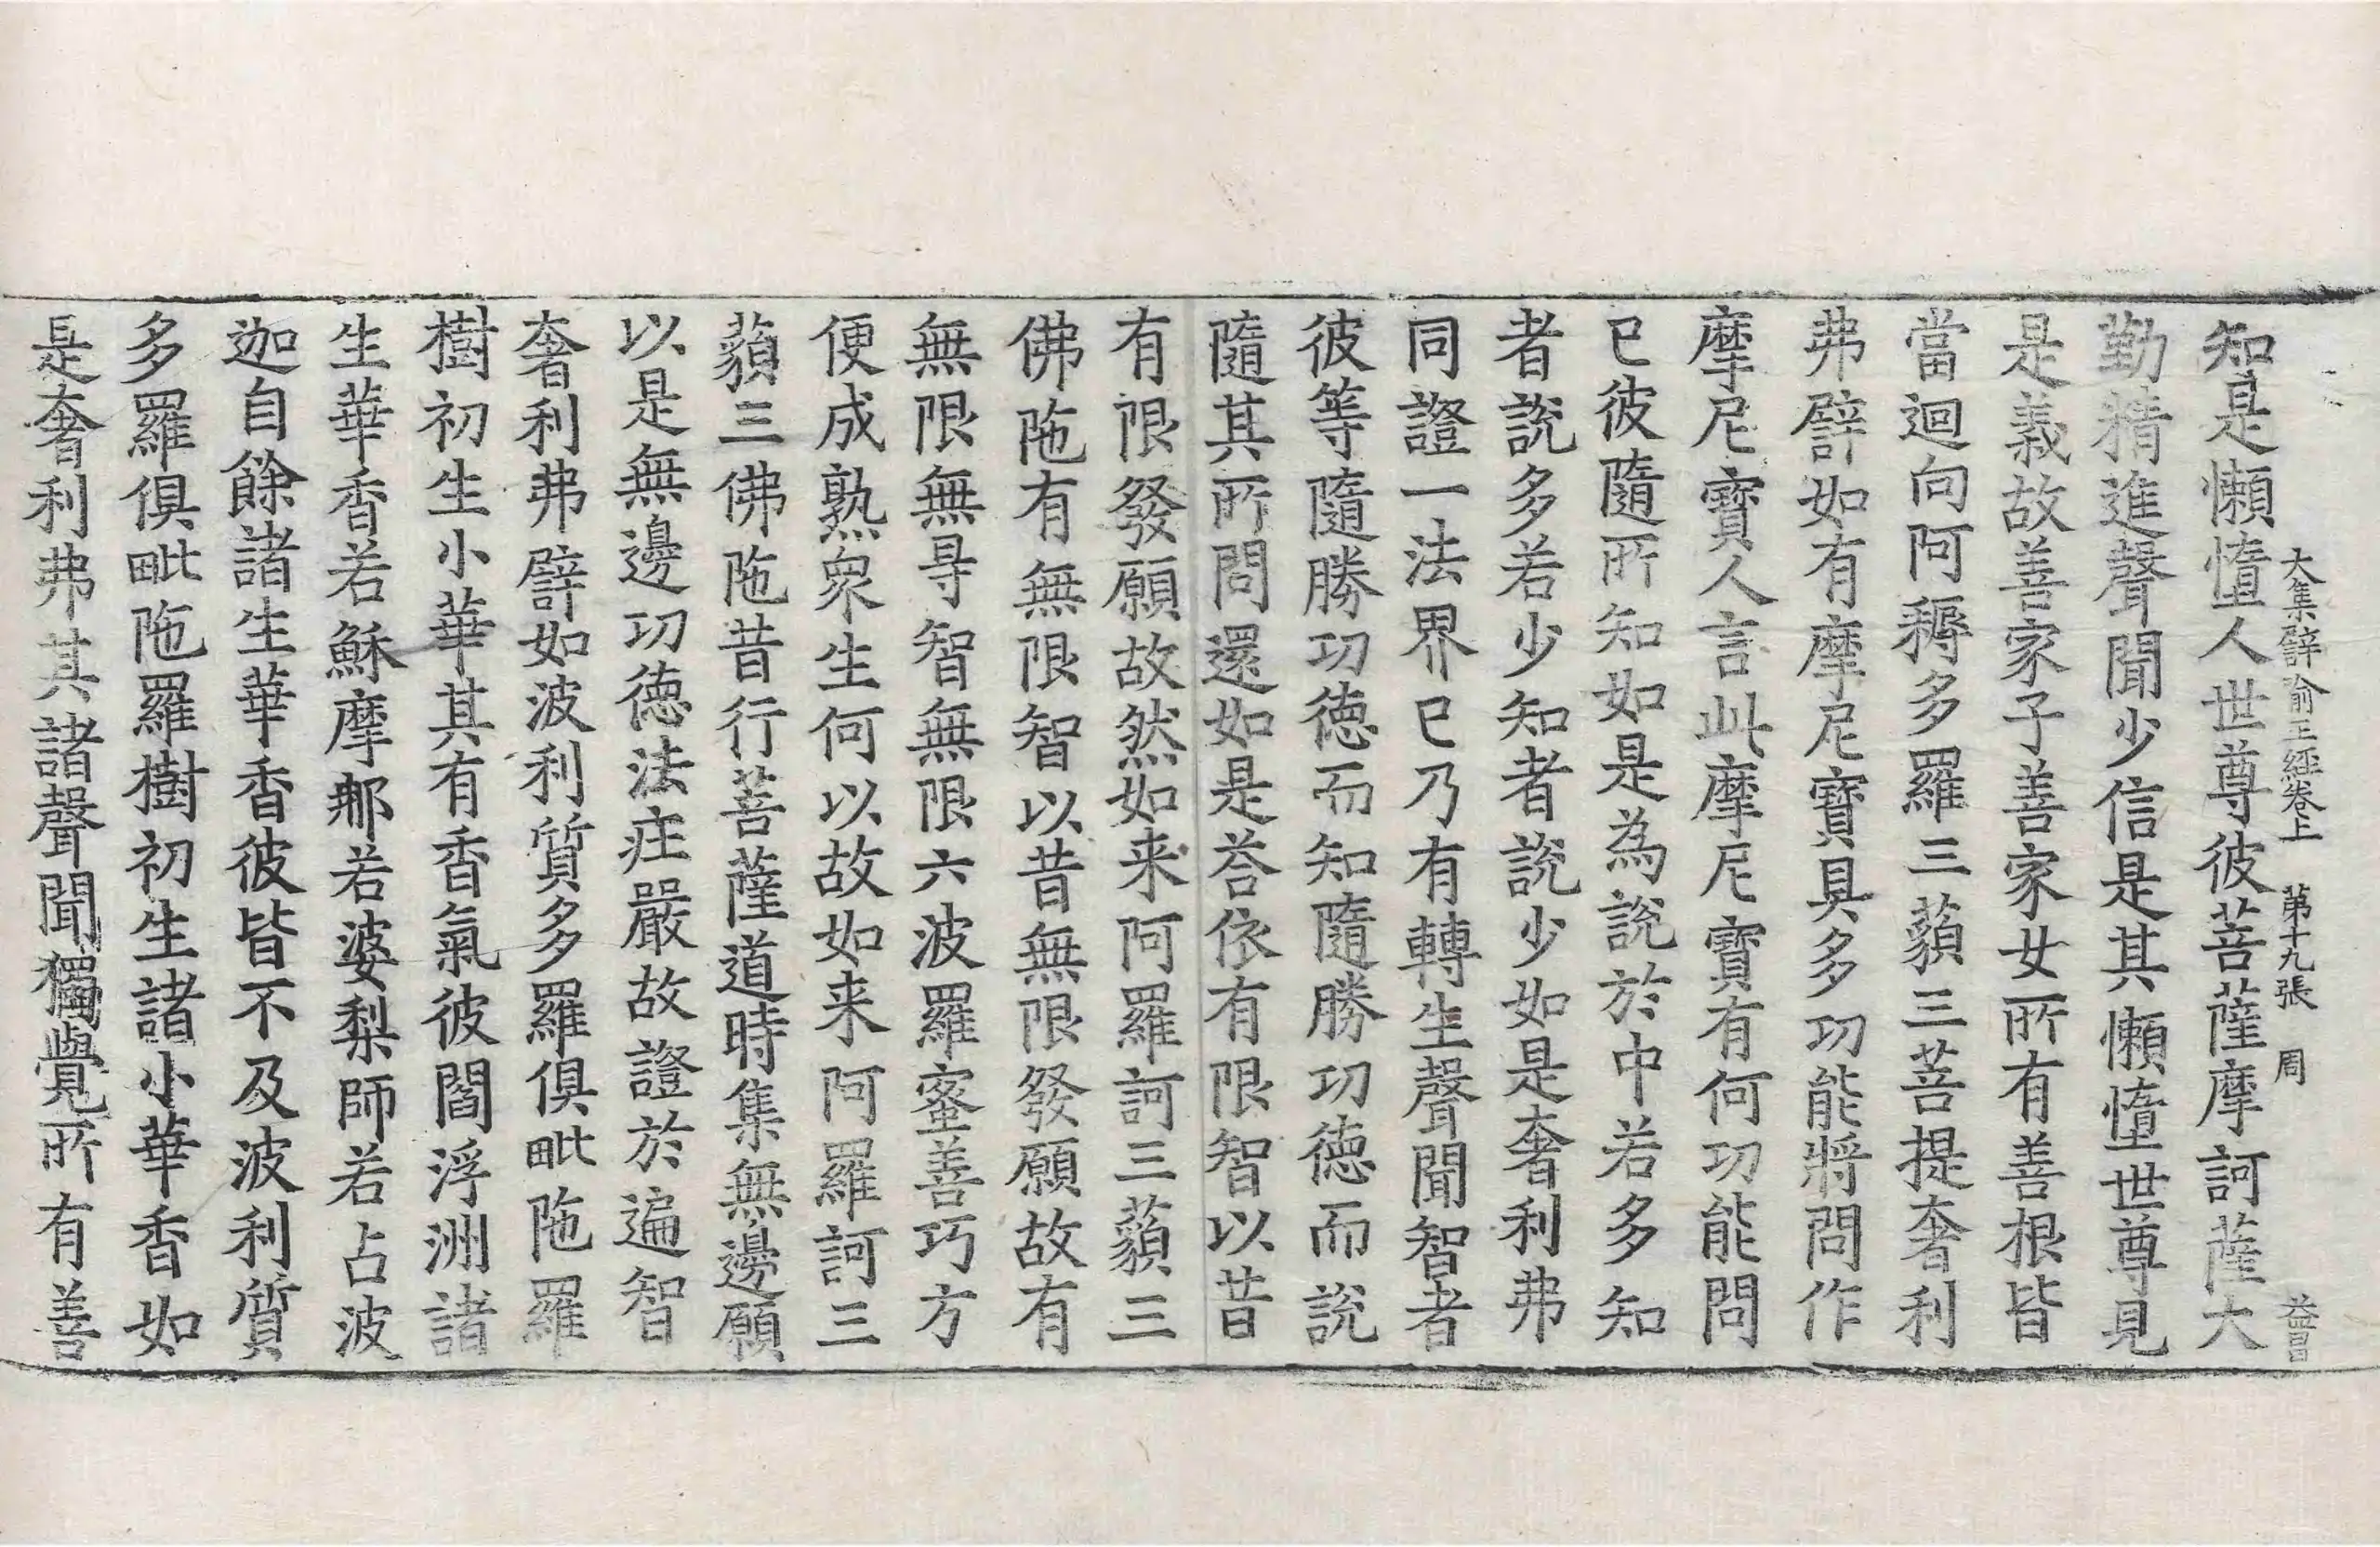 大集譬喻王經卷上 第十九張 周 益昌
知是懶惰人世尊彼菩薩摩訶薩大
勤精進聲聞少信是其懶惰世尊見
是義故善家子善家女所有善根皆
當迴向阿耨多羅三藐三菩提奢利
弗譬如有摩尼寶具多功能將問作
摩尼寶人言此摩尼寶有何功能問
已彼隨所知如是為說於中若多知
者說多若少知者說少如是奢利弗
同證一法界已乃有轉生聲聞智者
彼等隨勝功德而知隨勝功德而說
隨其所問還如是荅依有限智以昔
有限發願故然如来阿羅訶三藐三
佛陁有無限智以昔無限發願故有
無限無㝵智無限六波羅蜜善巧方
便成熟衆生何以故如来阿羅訶三
藐三佛陁昔行菩薩道時集無邊願
以是無邊功德法庄嚴故證於遍智
奢利弗譬如波利質多羅俱毗陁羅
樹初生小華其有香氣彼閻浮洲諸
生華香若穌摩那若婆梨師若占波
迦自餘諸生華香彼皆不及波利質
多羅俱毗陁羅樹初生諸小華香如
是奢利弗其諸聲聞獨覺所有善